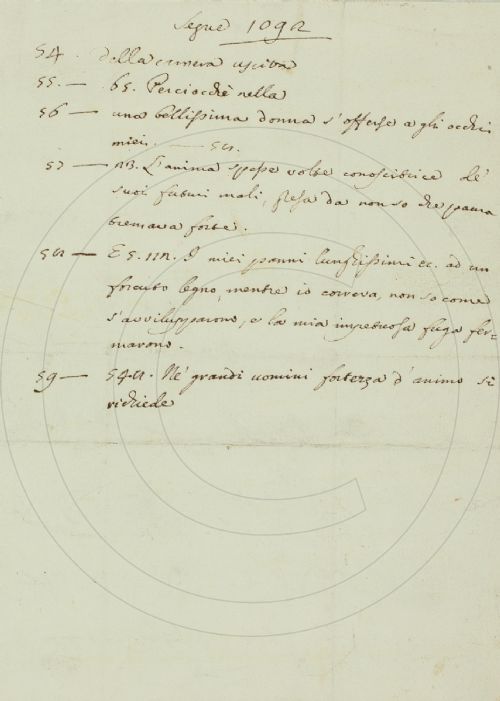 Segue 1092
54. della camera usciva
55. — 65. Perciocchè nella
56 — una bellissima donna s'offerse a gli occhi
miei. — 54.
57 — NB. L'anima spesse volte conoscitrice de'
suoi futuri mali, presa da non so che paura
tremava forte.
58 — E 5. NB. I miei panni lunghissimi ec. ad un
forcuto legno, mentre io correva, non so come
s'avvilupparono, e la mia impetuosa fuga fer=
marono.
59 — 548. Ne' grandi uomini fortezza d'animo si
richiede